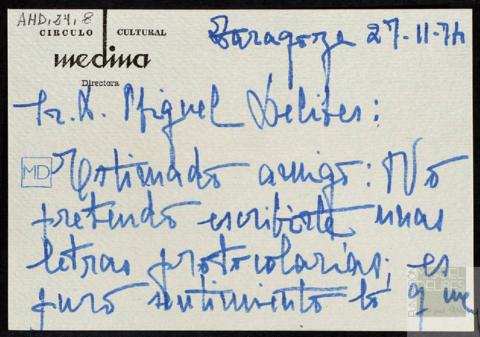 AHD, 24, 8
CIRCULO CULTURAL
medina
Directora
Zaragoza 27-11-74
Sr. D. Miguel Delibes:
MD
Estimado amigo: No
pretendo escribirte unas
letras protocolarias, es
puro sentimiento lo q me